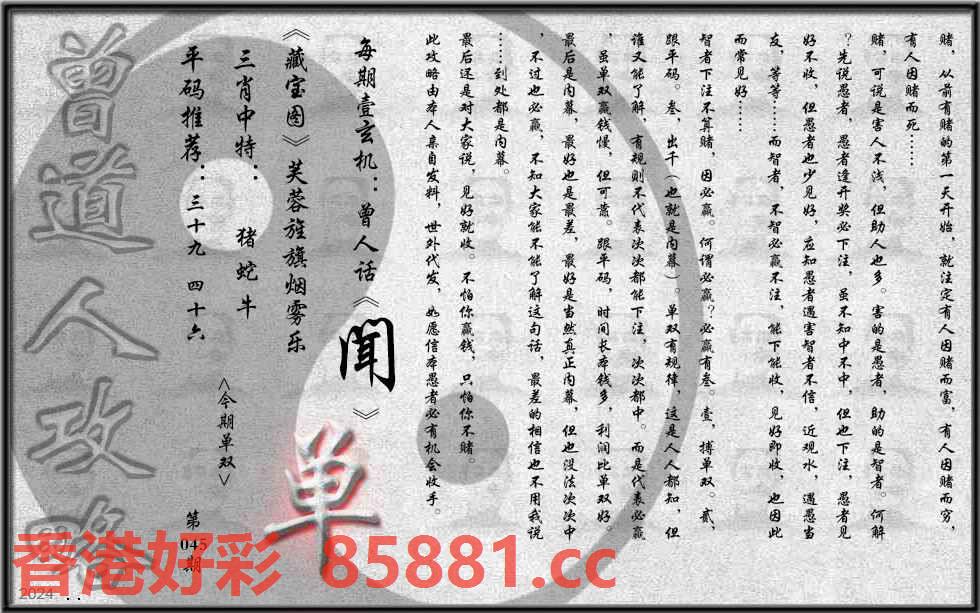 赌，从前有赌的第一天开始，就注定有人因赌而富，有人因赌而穷，
有人因赌而死……
赌，可说是害人不浅，但助人也多。害的是愚者，助的是智者。何解
？先说愚者，愚者逢开奖必下注，虽不知中不中，但也下注，愚者见
好不收，但愚者也少见好，应知愚者遇害智者不信，近观水，遇愚当
友，等等……而智者，不智必赢不注，能下能收，见好即收，也因此
而常见好……
智者下注不算赌，因必赢。何谓必赢？必赢有叁。壹，搏单双。贰，
跟平码。叁，出千（也就是内幕）。单双有规律，这是人人都知，但
谁又能了解，有规则不代表次次都能下注，次次都中。而是代表必赢
，虽单双赢钱慢，但可靠。跟平码，时间长本钱多，利润比单双好。
最后是内幕，最好也是最差，最好是当然真正内幕，但也没法次次中
，不过也必赢，不知大家能不能了解这句话，最差的相信也不用我说
……到处都是内幕。
最后还是对大家说，见好就收。不怕你赢钱，只怕你不赌。
此攻略由本人亲自发料，世外代发，如愿信本愚者必有机会收手。
每期壹玄机：曾人话《闻》
《藏宝图》芙蓉旌旗烟雾乐
三肖中特：猪蛇牛
平码推荐：三十九 四十六
<今期单双>
单
第045期
曾道人攻略
香港好彩 85881.cc
2024